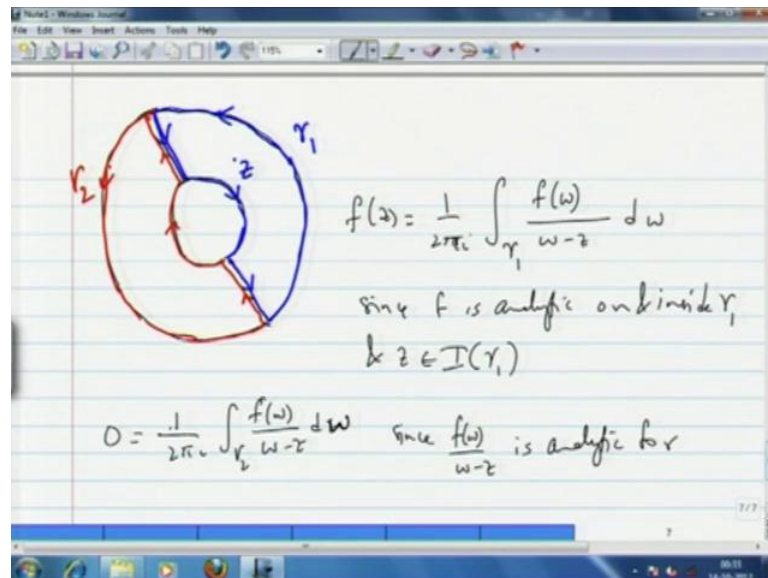 Note1 - Windows Journal
File Edit View Insert Actions Tools Help
115%
γ₁
γ₂
z
f(z) = 1/2πi ∫_γ₁ f(w)/w-z dw
since f is analytic on & inside γ₁
& z ∈ I(γ₁)
0 = 1/2πi ∫_γ₂ f(w)/w-z dw since f(w)/w-z is analytic for
7/7
7
00:33